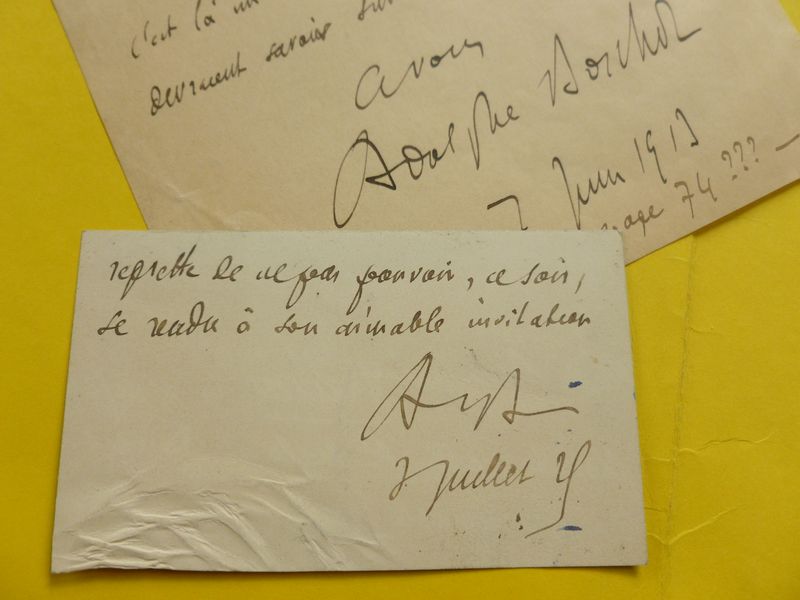 c'est là un
devraient savoir sur
avons
Adolphe Boschot
7 Juin 1913
page 74 ???
regrette de ne pas pouvoir, ce soir,
se rendre à son aimable invitation
Juillet